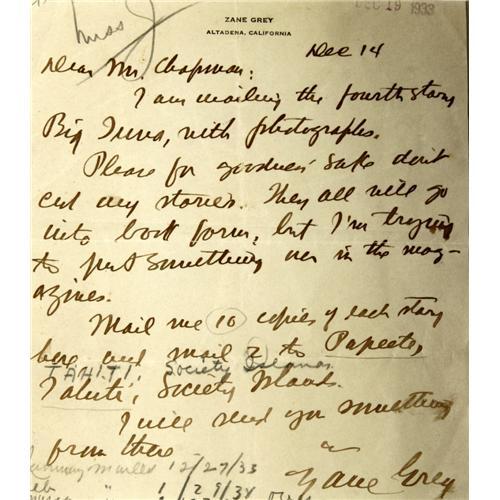 DEC 19 1933
Miss
ZANE GREY
ALTADENA, CALIFORNIA
Dec 14
Dear Mr. Chapman:
I am mailing the fourth story
Big Tuna, with photographs.
Please for goodness' sake don't
cut my stories. They all will go
into book form, but I'm trying
to put something over in the mag-
azines.
Mail me 10 copies of each story
here and mail 2 to Papeete,
TAHITI. Society Islands.
Tahiti, Society Islands.
I will send you something
from there
Zane Grey
mailed 12/27/33
Feb " 1/29/34